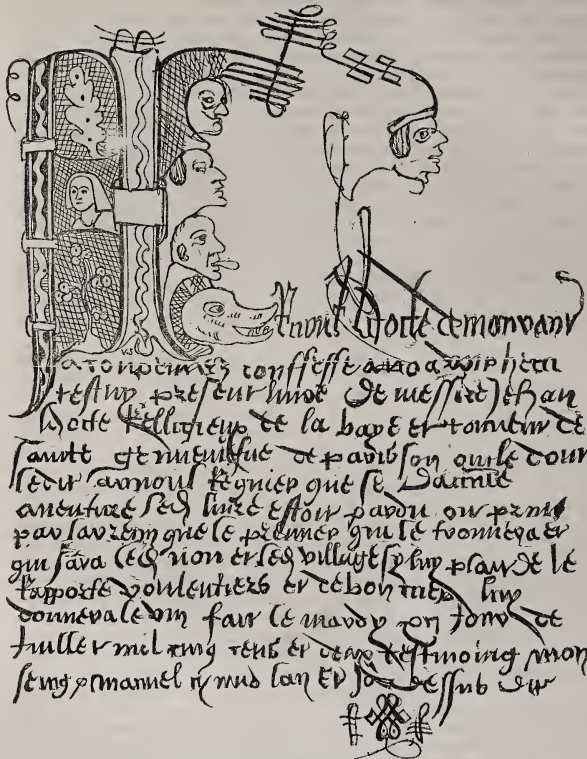 Arnoul Hode demourant
a tompeines conffesse avoir
cestuy present livre de messire Jehan
Hode Relligieux de labaye et couvent de
saincte geneuiefue de paris son oncle dont
ledit arnoul Regnier que se
aventure led livre estoit pardu ou prins
par larrecin que le premier qui le trouvera et
qui sara led non et led village sy luy plaist de le
Rapporte voulentiers et de bon cueur luy
donnera le vin fait le mardy jour de
Juillet mil cinq cens et tesmoing mon
seing manuel cy mis lan et jour dessus dit